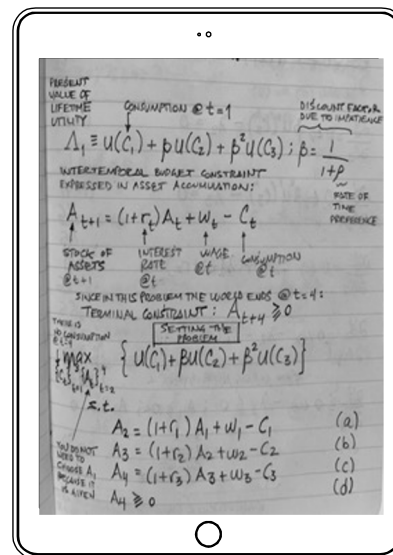 PRESENT
VALUE OF
LIFETIME
UTILITY
CONSUMPTION @ t=1
DISCOUNT FACTOR
DUE TO IMPATIENCE
Λ₁ ≡ U(C₁) + βU(C₂) + β²U(C₃) ; β = 1/(1+ρ)
RATE OF
TIME
PREFERENCE
INTERTEMPORAL BUDGET CONSTRAINT
EXPRESSED IN ASSET ACCUMULATION:
A_{t+1} = (1+r_t)A_t + w_t - C_t
STOCK OF
ASSETS
@t+1
INTEREST
RATE
@t
WAGE
@t
CONSUMPTION
@t
SINCE IN THIS PROBLEM THE WORLD ENDS @ t=4:
TERMINAL CONSTRAINT: A_{t+4} ≥ 0
THERE IS
NO CONSUMPTION
@t=4
SETTING THE
PROBLEM
max {U(C₁) + βU(C₂) + β²U(C₃)}
s.t.
A₂ = (1+r₁)A₁ + w₁ - C₁ (a)
A₃ = (1+r₂)A₂ + w₂ - C₂ (b)
A₄ = (1+r₃)A₃ + w₃ - C₃ (c)
A₄ ≥ 0 (d)
YOU DO NOT
NEED TO
CHOOSE A₁
BECAUSE IT
IS GIVEN